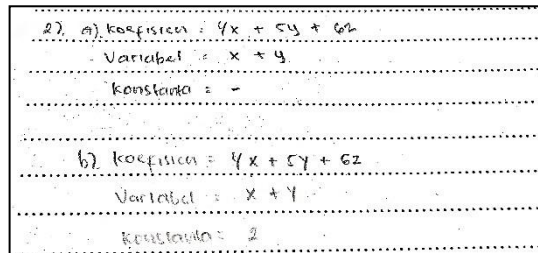 2). a) Koefisien : 4x + 5y + 6z
Variabel : x + y
Konstanta : -
b) Koefisien : 4x + 5y + 6z
Variabel : x + y
Konstanta : 2